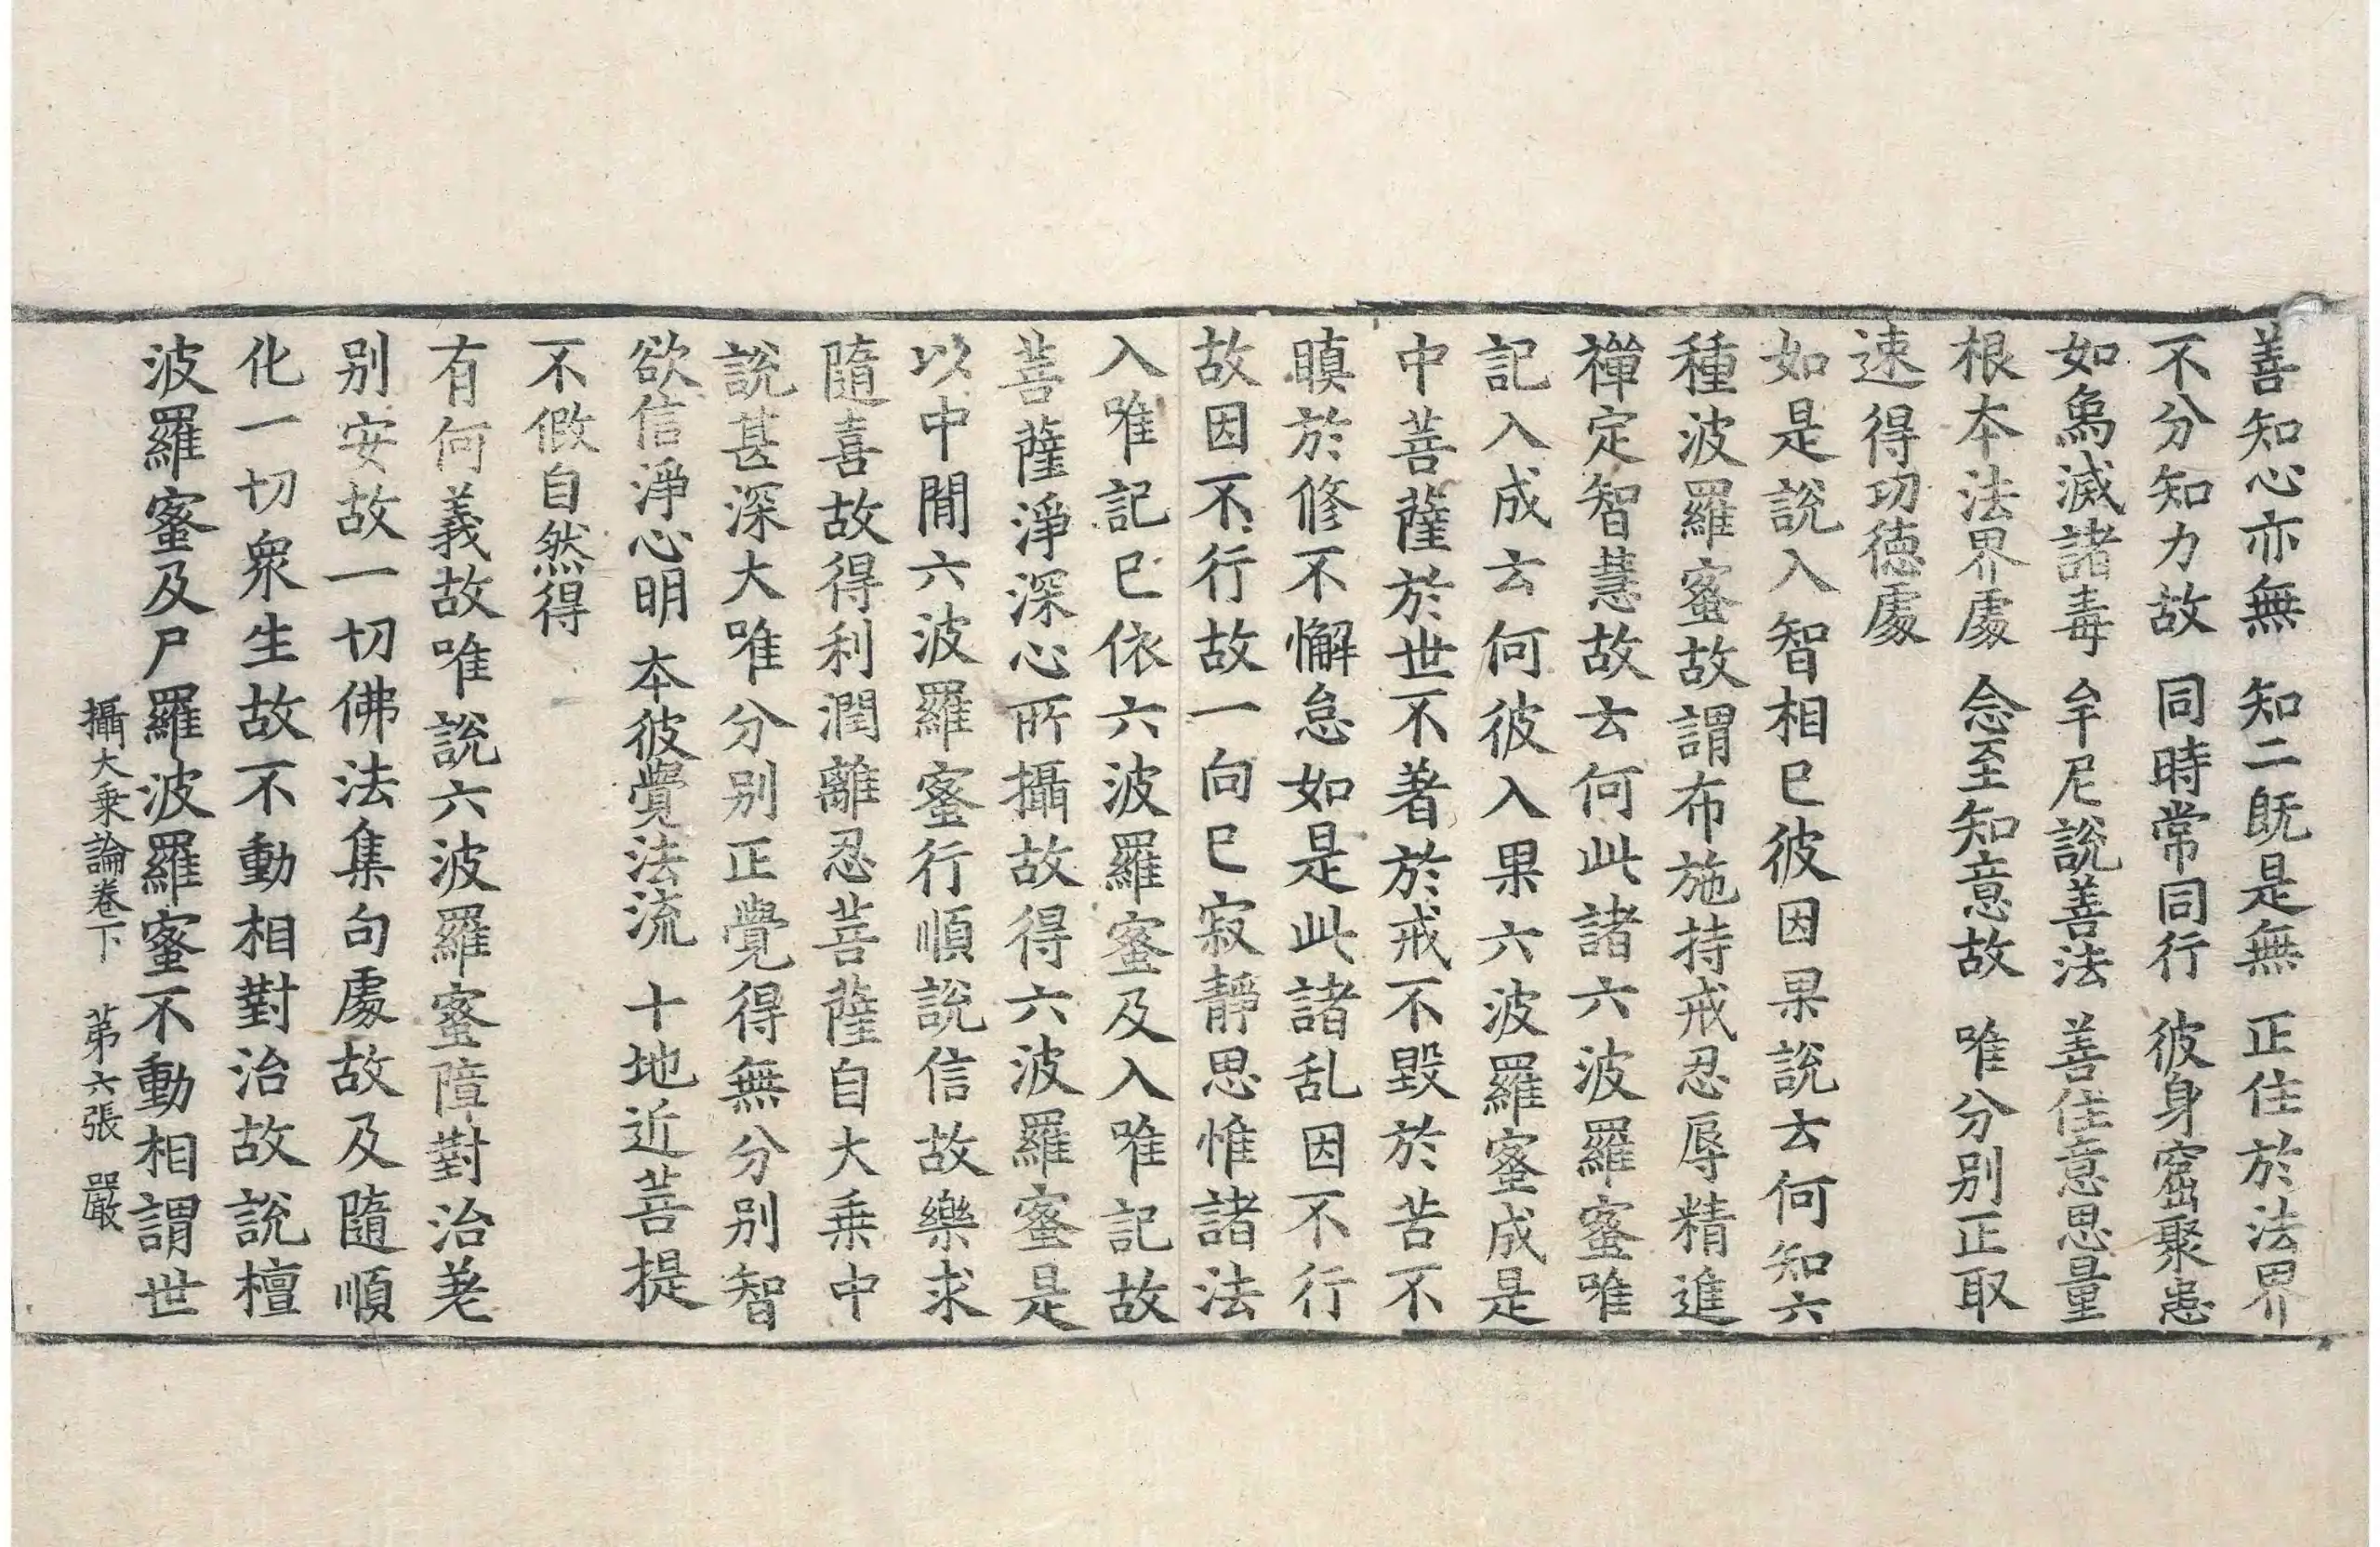 善知心亦無　知二既是無　正住於法界
不分知力故　同時常同行　彼身窟聚惡
如烏滅諸毒　牟尼說善法　善住意思量
根本法界處　念至知意故　唯分別正取
速得功德處
如是說入智相已彼因果說去何知六
種波羅蜜故謂布施持戒忍辱精進
禪定智慧故去何此諸六波羅蜜唯
記入成去何彼入果六波羅蜜成是
中菩薩於世不著於戒不毀於苦不
瞋於修不懈怠如是此諸乱因不行
故因不行故一向已寂靜思惟諸法
入唯記已依六波羅蜜及入唯記故
菩薩淨深心所攝故得六波羅蜜是
以中閒六波羅蜜行順說信故樂求
隨喜故得利潤離忍菩薩自大乘中
說甚深大唯分別正覺得無分別智
欲信淨心明　本彼覺法流　十地近菩提
不假自然得
有何義故唯說六波羅蜜障對治差
別安故一切佛法集句處故及隨順
化一切衆生故不動相對治故說檀
波羅蜜及尸羅波羅蜜不動相謂世
攝大乘論卷下　第六張　嚴